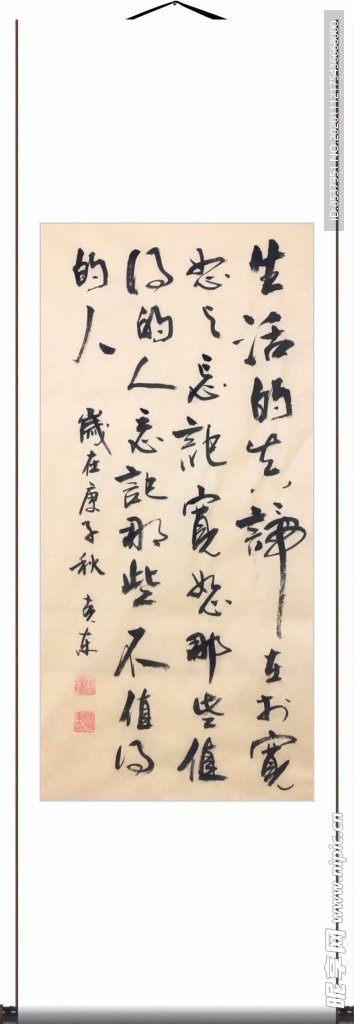 生活的真諦在於寬
恕与忘記寬恕那些值
得的人忘記那些不值得
的人
歲在庚子秋
ID:8537951 NO:20201112175436668000
昵享网 www.nipic.cn